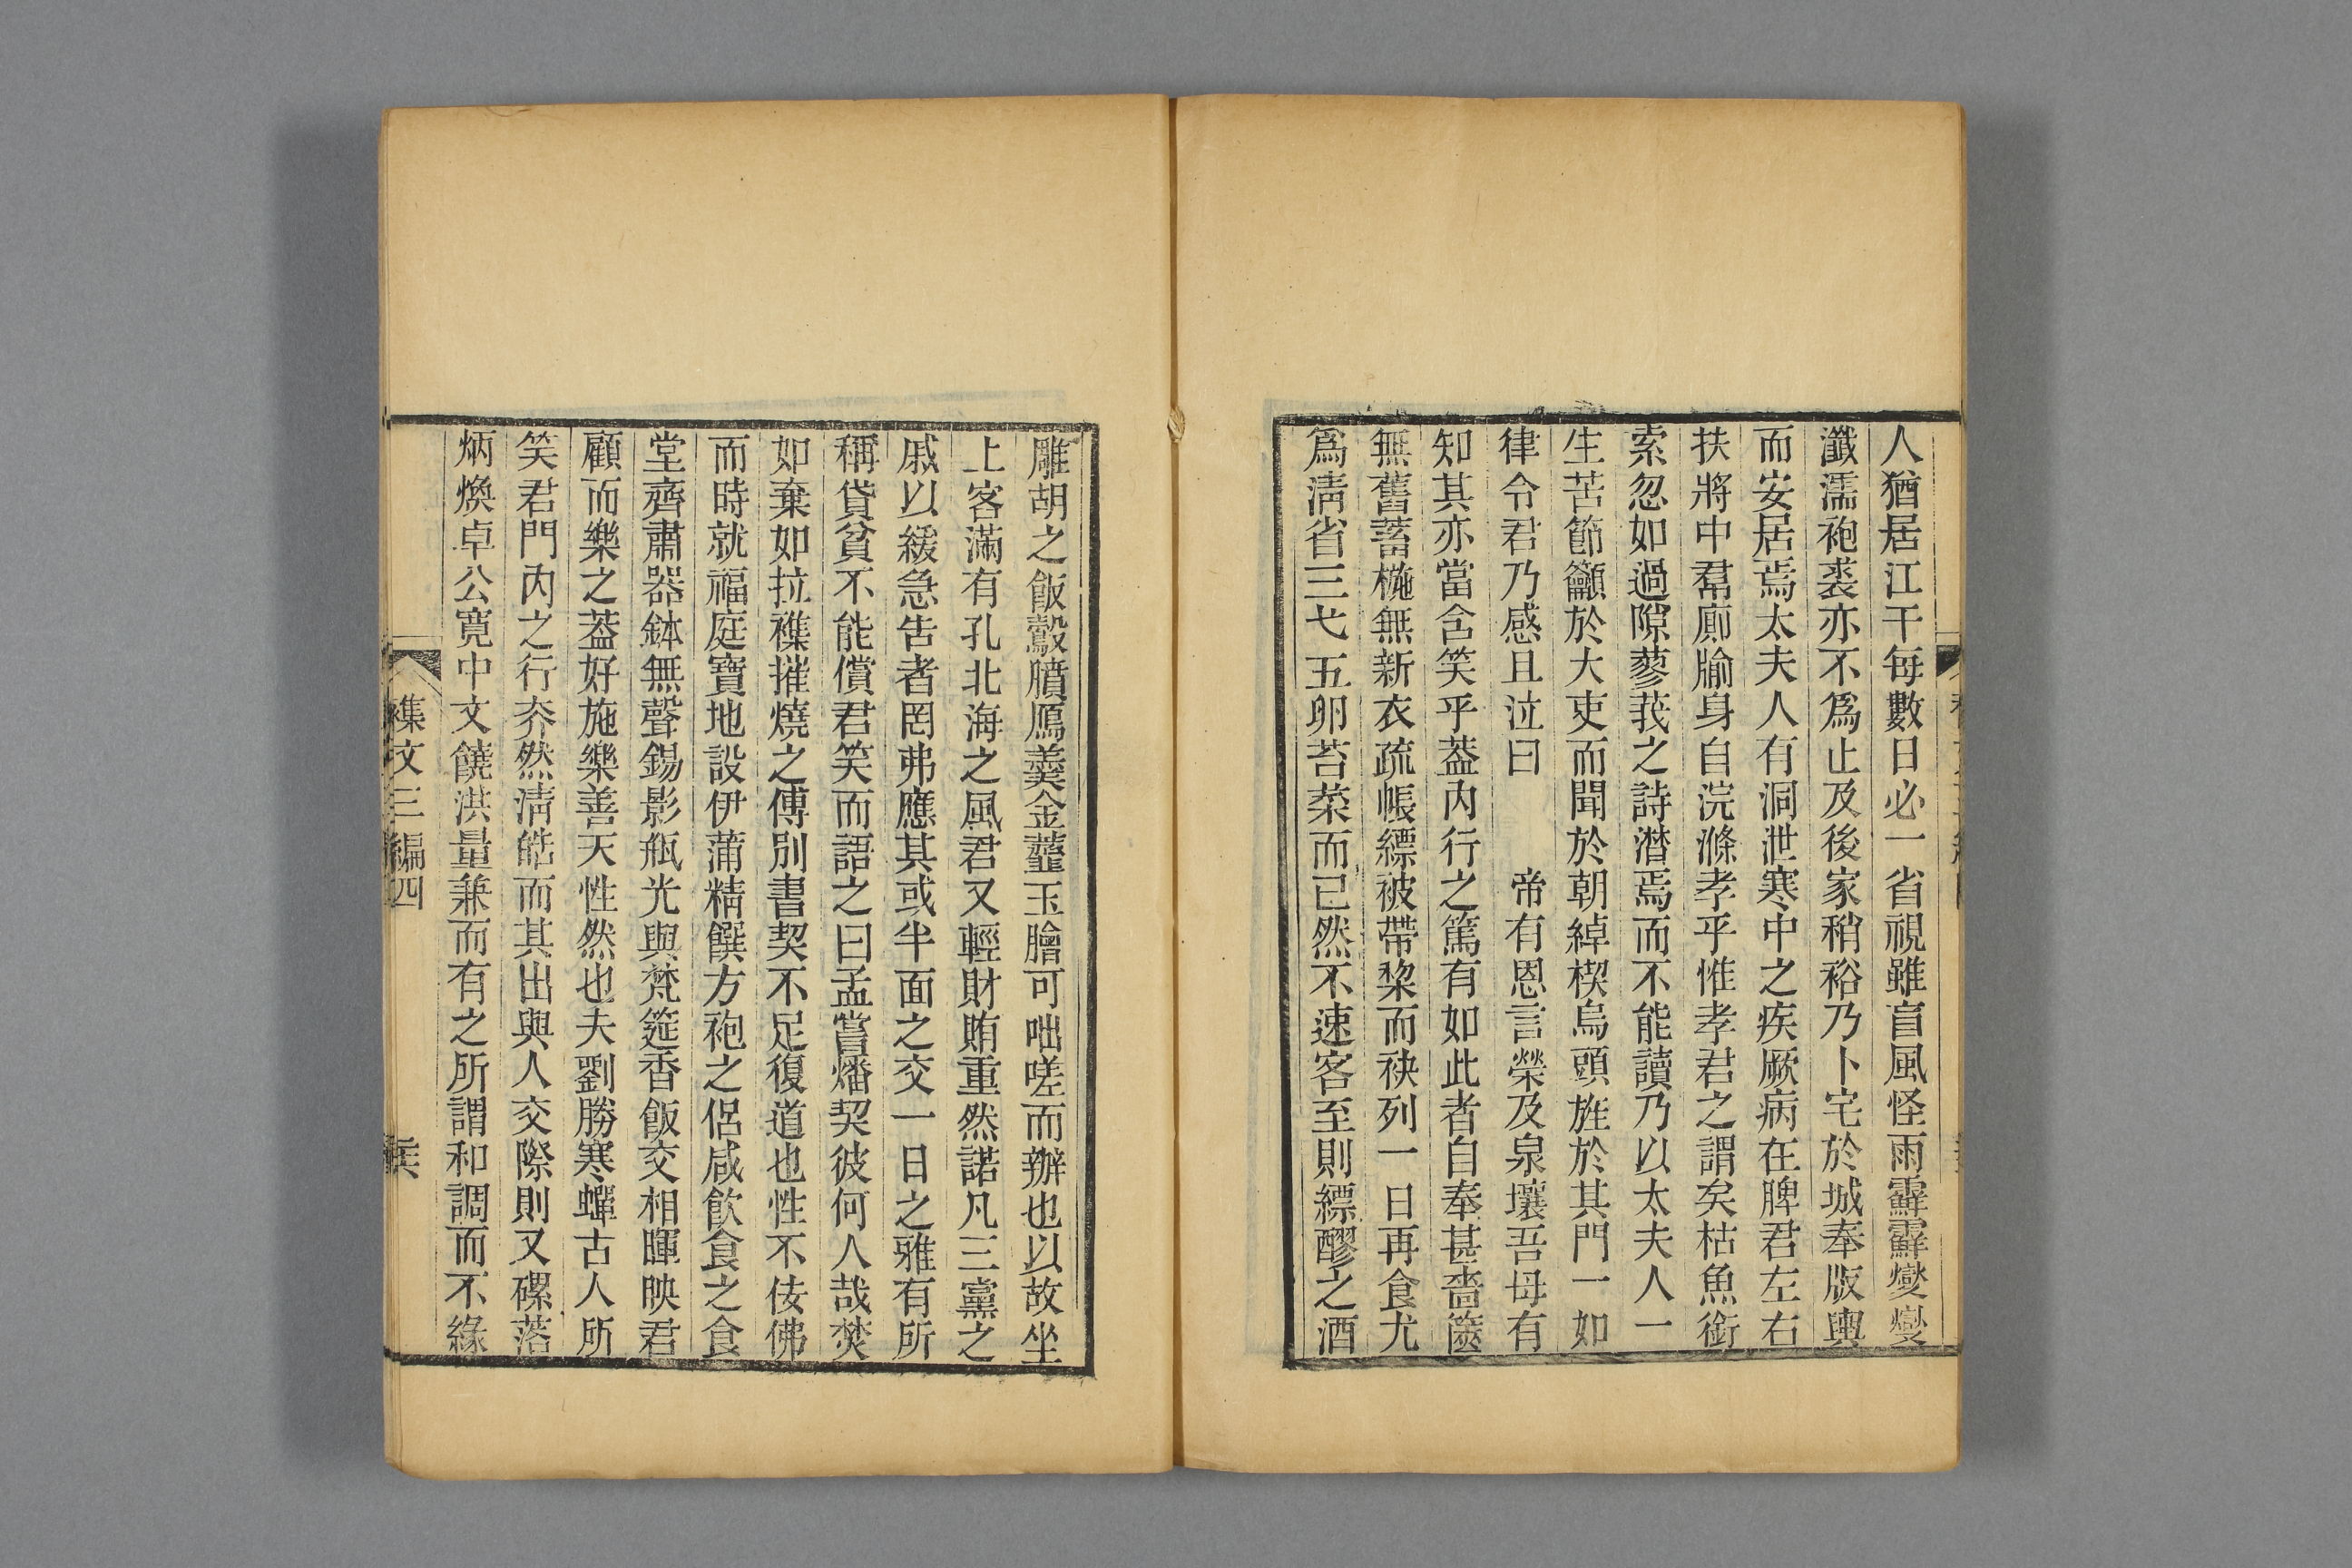 人猶居江干每數日必一省視雖盲風怪雨霹靂燮燮
瀸濡袍裘亦不爲止及後家稍裕乃卜宅於城奉版輿
而安居焉太夫人有洞泄寒中之疾厥病在脾君左右
扶將中帬廁牏身自浣滌孝乎惟孝君之謂矣枯魚銜
索忽如過隙蓼莪之詩潸焉而不能讀乃以太夫人一
生苦節籲於大吏而聞於朝綽楔烏頭旌於其門一如
律令君乃感且泣曰 帝有恩言榮及泉壤吾母有
知其亦當含笑乎葢內行之篤有如此者自奉甚嗇篋
無舊蓄椸無新衣疏帳縹被帶槃而袂列一日再食尤
爲淸省三弋五卵苔菜而已然不速客至則縹醪之酒
雕胡之飯鷇膹鴈羹金虀玉膾可咄嗟而辦也以故坐
上客滿有孔北海之風君又輕財賄重然諾凡三黨之
戚以緩急告者罔弗應其或半面之交一日之雅有所
稱貸貧不能償君笑而語之曰孟嘗燔契彼何人哉焚
如棄如拉襍摧燒之傅別書契不足復道也性不佞佛
而時就福庭寶地設伊蒲精饌方袍之侶咸飮食之食
堂齊肅器鉢無聲錫影瓶光與梵筵香飯交相暉映君
顧而樂之葢好施樂善天性然也夫劉勝寒蟬古人所
笑君門內之行夰然淸皓而其出與人交際則又磥落
炳煥卓公寬中文饒洪量兼而有之所謂和調而不緣
襍文三編四